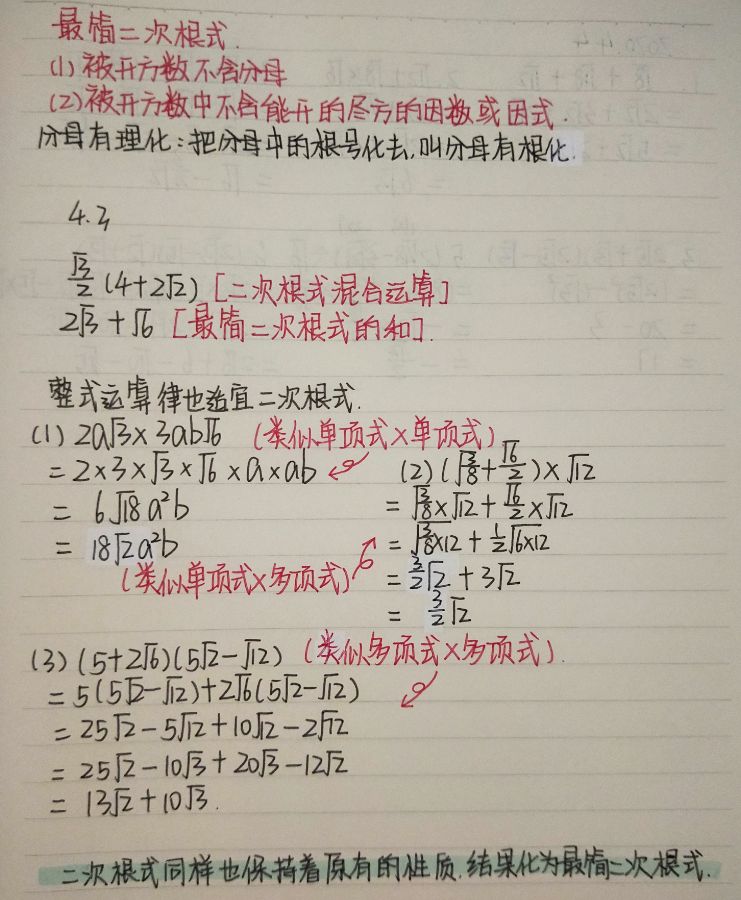 最简二次根式.
(1) 被开方数不含分母
(2) 被开方数中不含能开的尽方的因数或因式.
分母有理化:把分母中的根号化去,叫分母有根化.
4.3
√3/2 (4+2√2) [二次根式混合运算]
2√3+√6 [最简二次根式的和].
整式运算律也适宜二次根式.
(1) 2a√3×3ab√6 (类似单项式×单项式)
=2×3×√3×√6×a×ab
=6√18 a²b
=18√2 a²b
(类似单项式×多项式)
(2) (√(3/8)+√6/2)×√12
=√(3/8)×√12+√6/2×√12
=√(3/8×12)+1/2√(6×12)
=3/2√2+3√2
=3/2√2
(3) (5+2√6)(5√2-√12) (类似多项式×多项式).
=5(5√2-√12)+2√6(5√2-√12)
=25√2-5√12+10√12-2√72
=25√2-10√3+20√3-12√2
=13√2+10√3.
二次根式同样也保持着原有的性质.结果化为最简二次根式.